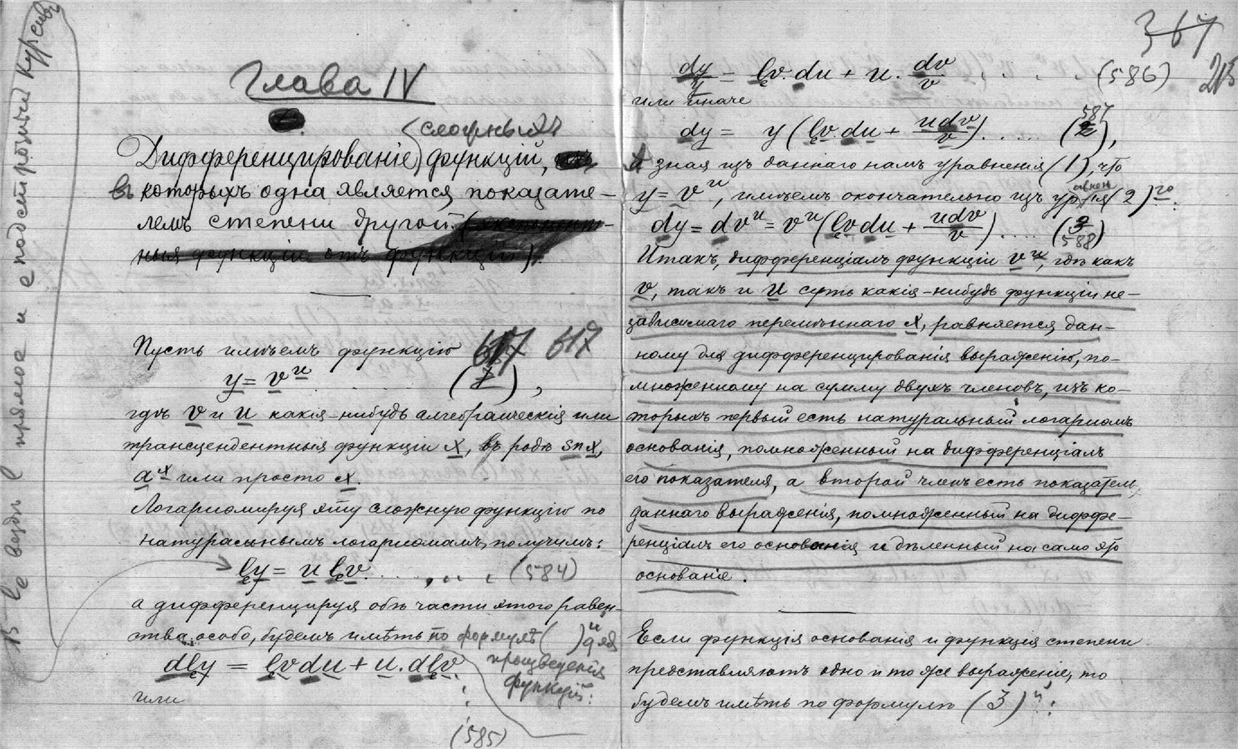 Глава IV
(сложныхъ
Дифференцированіе) функцій,
въ которыхъ одна является показате-
лемъ степени другой
ныя функціи отъ функцій).
Пусть имѣемъ функцію 617
y = vᵘ . . . . . . ( ),
гдѣ v и u какія-нибудь алгебраическія или
трансцендентныя функціи x, въ родѣ sn x,
aˣ или просто x.
Логариѳмируя эту сложную функцію по
натуральнымъ логариѳмамъ, получимъ:
ly = u lv . . . . . . (584)
а дифференцируя обѣ части этого равен-
ства особо, будемъ имѣть по формулѣ ( )й для
произведенія
функцій:
dly = lvdu + u.dlv
или
(585)
l вездѣ прямое и e подстрочный курсивъ
367
213
dy/y = lv.du + u.dv/v . . . . (586)
или иначе
dy = y (lvdu + udv/v) . . . . (587),
а зная изъ даннаго намъ уравненія (1), что
y = vᵘ, имѣемъ окончательно изъ уравненія (2)го:
dy = dvᵘ = vᵘ (lvdu + udv/v) . . . . (3
588)
Итакъ, дифференціалъ функціи vᵘ, гдѣ какъ
v, такъ и u суть какія-нибудь функціи не-
зависимаго перемѣннаго x, равняется дан-
ному для дифференцированія выраженію, по-
множенному на сумму двухъ членовъ, изъ ко-
торыхъ первый есть натуральный логариѳмъ
основанія, помноженный на дифференціалъ
его показателя, а второй членъ есть показатель
даннаго выраженія, помноженный на диффе-
ренціалъ его основанія и дѣленный на само это
основаніе.
Если функція основанія и функція степени
представляютъ одно и то же выраженіе, то
будемъ имѣть по формулѣ (3)й: